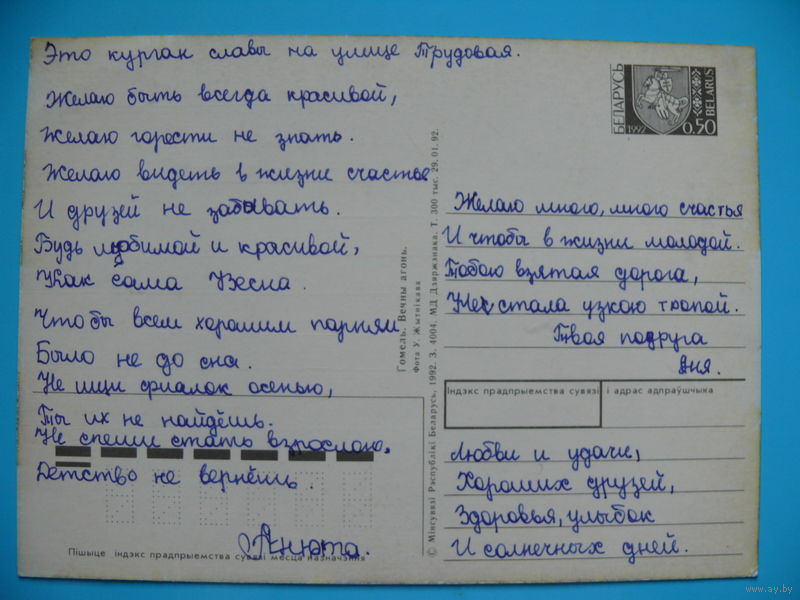 Это курган славы на улице Трудовая.
Желаю быть всегда красивой,
Желаю горести не знать.
Желаю видеть в жизни счастье
И друзей не забывать.
Будь любимой и красивой,
Как сама Весна.
Чтобы всем хорошим парням
Было не до сна.
Не ищи фиалок осенью,
Ты их не найдёшь.
Не спеши стать взрослою,
Детство не вернёшь.
Анюта.
Пішыце індэкс прадпрыемства сувязі месца назначэння
Гомель. Вечны агонь.
Фота У. Жытнікава
© Мінсувязі Рэспублікі Беларусь, 1992. З. 4004. МД Дзяржзнака. Т. 300 тыс. 29. 01. 92.
БЕЛАРУСЬ
1992
0,50
BELARUS
Желаю много, много счастья
И чтобы в жизни молодой.
Тобою взятая дорога,
Не стала узкою тропой.
Твоя подруга
Аня.
Індэкс прадпрыемства сувязі і адрас адпраўшчыка
Любви и удачи,
Хороших друзей,
Здоровья, улыбок
И солнечных дней.
www.ay.by